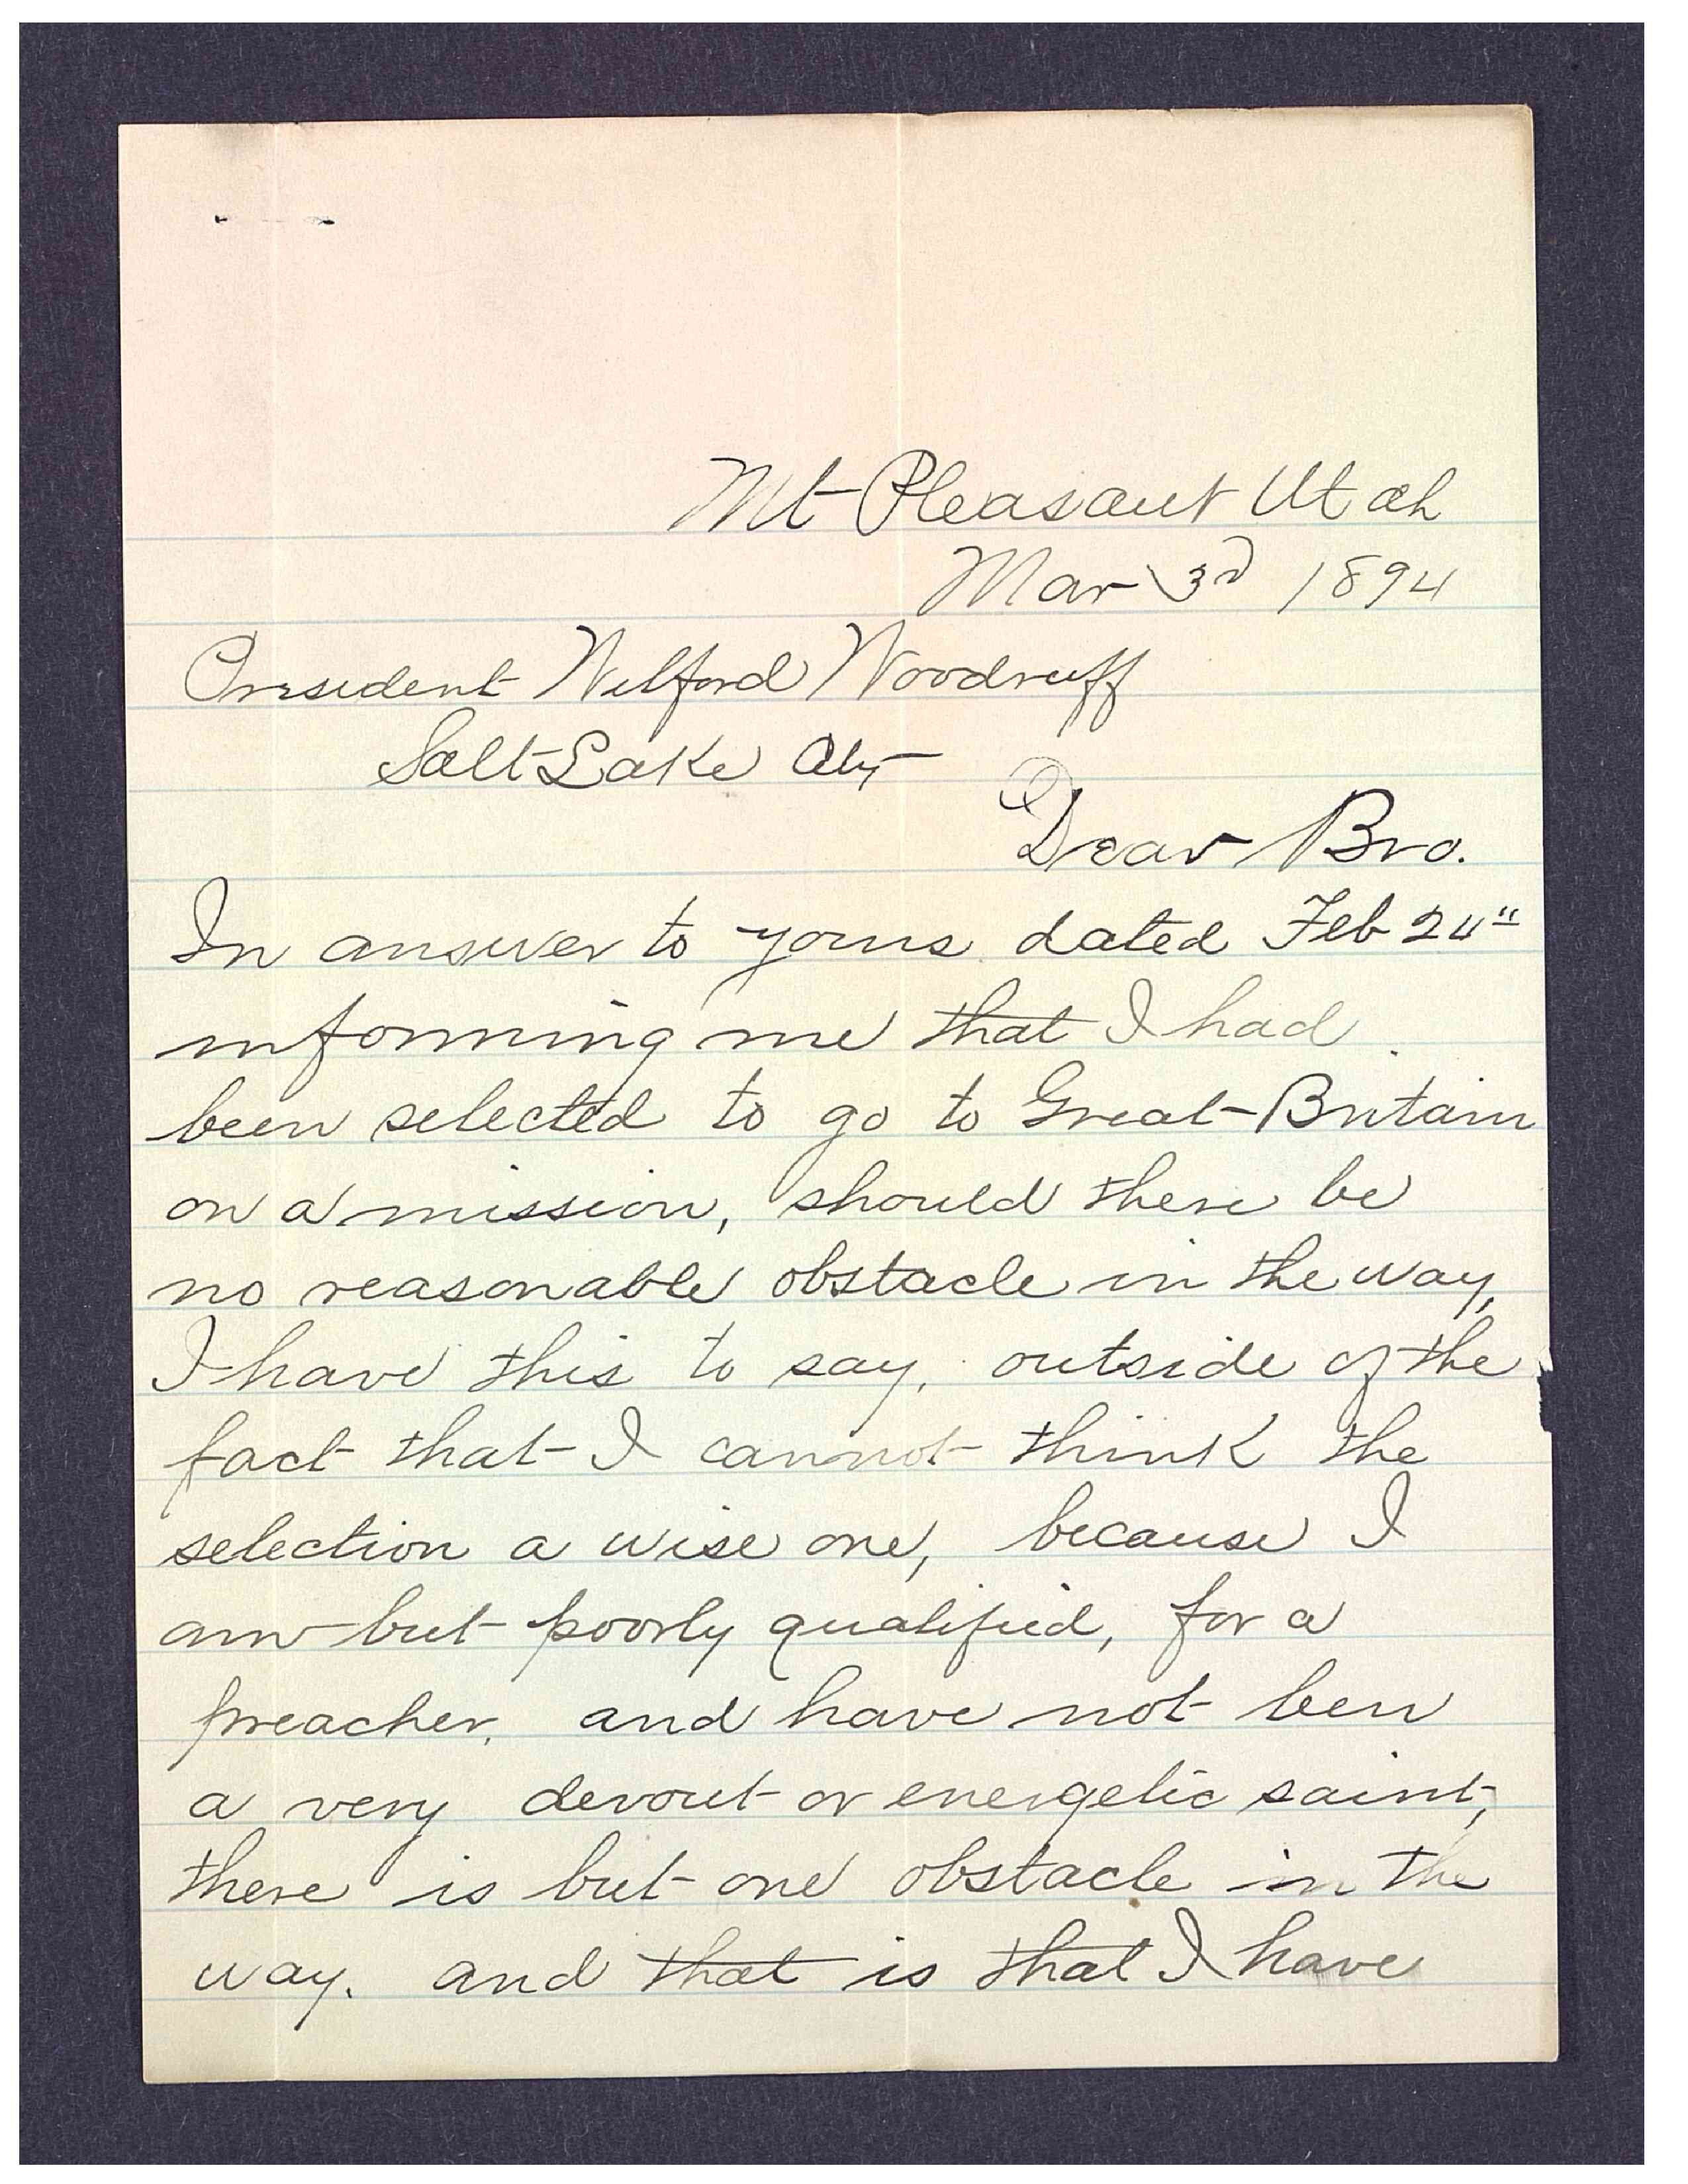 Mt Pleasant Utah
Mar 3d 1894
President Wilford Woodruff
Salt Lake City
Dear Bro.
In answer to yours dated Feb 24"
informing me that I had
been selected to go to Great Britain
on a mission, should there be
no reasonable obstacle in the way,
I have this to say, outside of the
fact that I cannot think the
selection a wise one, because I
am but poorly qualified, for a
preacher, and have not ben
a very devout or energetic saint,
there is but one obstacle in the
way. and that is that I have